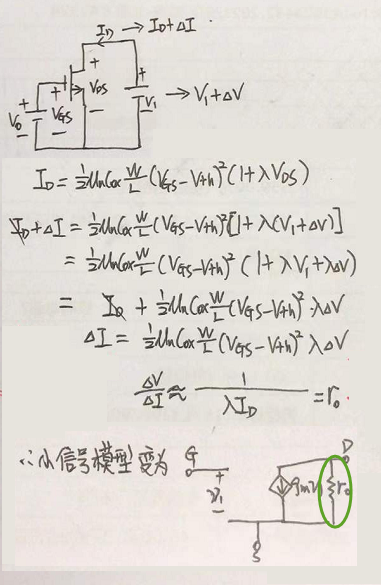 I_D → I_D+ΔI
+ + +
V_0 V_GS V_DS V_1 → V_1+ΔV
− − −
I_D = ½ μnCox W/L (V_GS−V_th)² (1+λV_DS)
I_D+ΔI = ½ μnCox W/L (V_GS−V_th)² [1+λ(V_1+ΔV)]
= ½ μnCox W/L (V_GS−V_th)² (1+λV_1+λΔV)
= I_D + ½ μnCox W/L (V_GS−V_th)² λΔV
ΔI = ½ μnCox W/L (V_GS−V_th)² λΔV
ΔV/ΔI ≈ 1/(λI_D) = r_o
∴小信号模型变为 G D
+ V_1 − g_mV_1 r_o
S